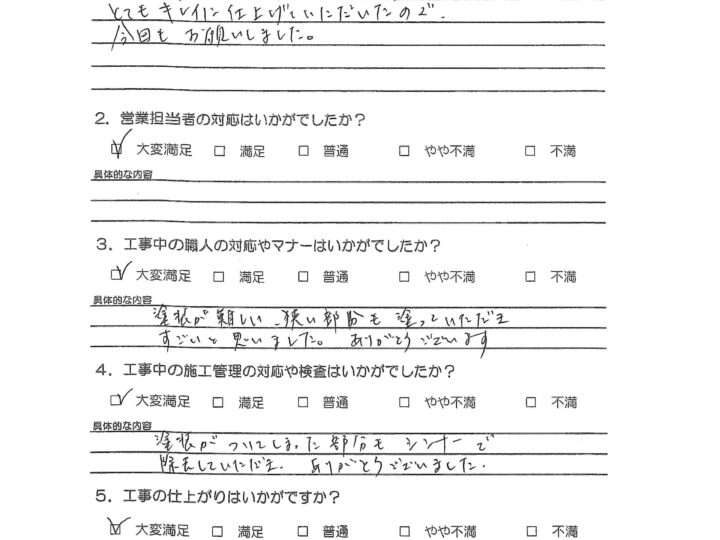 とてもキレイに仕上げていただいたので、
今回もお願いしました。
2．営業担当者の対応はいかがでしたか？
☑ 大変満足 □ 満足 □ 普通 □ やや不満 □ 不満
具体的な内容
3．工事中の職人の対応やマナーはいかがでしたか？
☑ 大変満足 □ 満足 □ 普通 □ やや不満 □ 不満
具体的な内容
塗装が難しい、狭い部分も塗っていただき
すごいと思いました。ありがとうございます
4．工事中の施工管理の対応や検査はいかがでしたか？
☑ 大変満足 □ 満足 □ 普通 □ やや不満 □ 不満
具体的な内容
塗装がついてしまった部分もシンナーで
除去していただき、ありがとうございました。
5．工事の仕上がりはいかがですか？
☑ 大変満足 □ 満足 □ 普通 □ やや不満 □ 不満